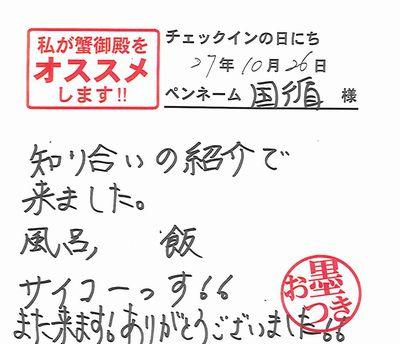 私が蟹御殿を
オススメ
します!!
チェックインの日にち
27年10月26日
ペンネーム 国循 様
知り合いの紹介で
来ました。
風呂, 飯
サイコーっす!!
また来ます!ありがとうございました!!
お墨つき